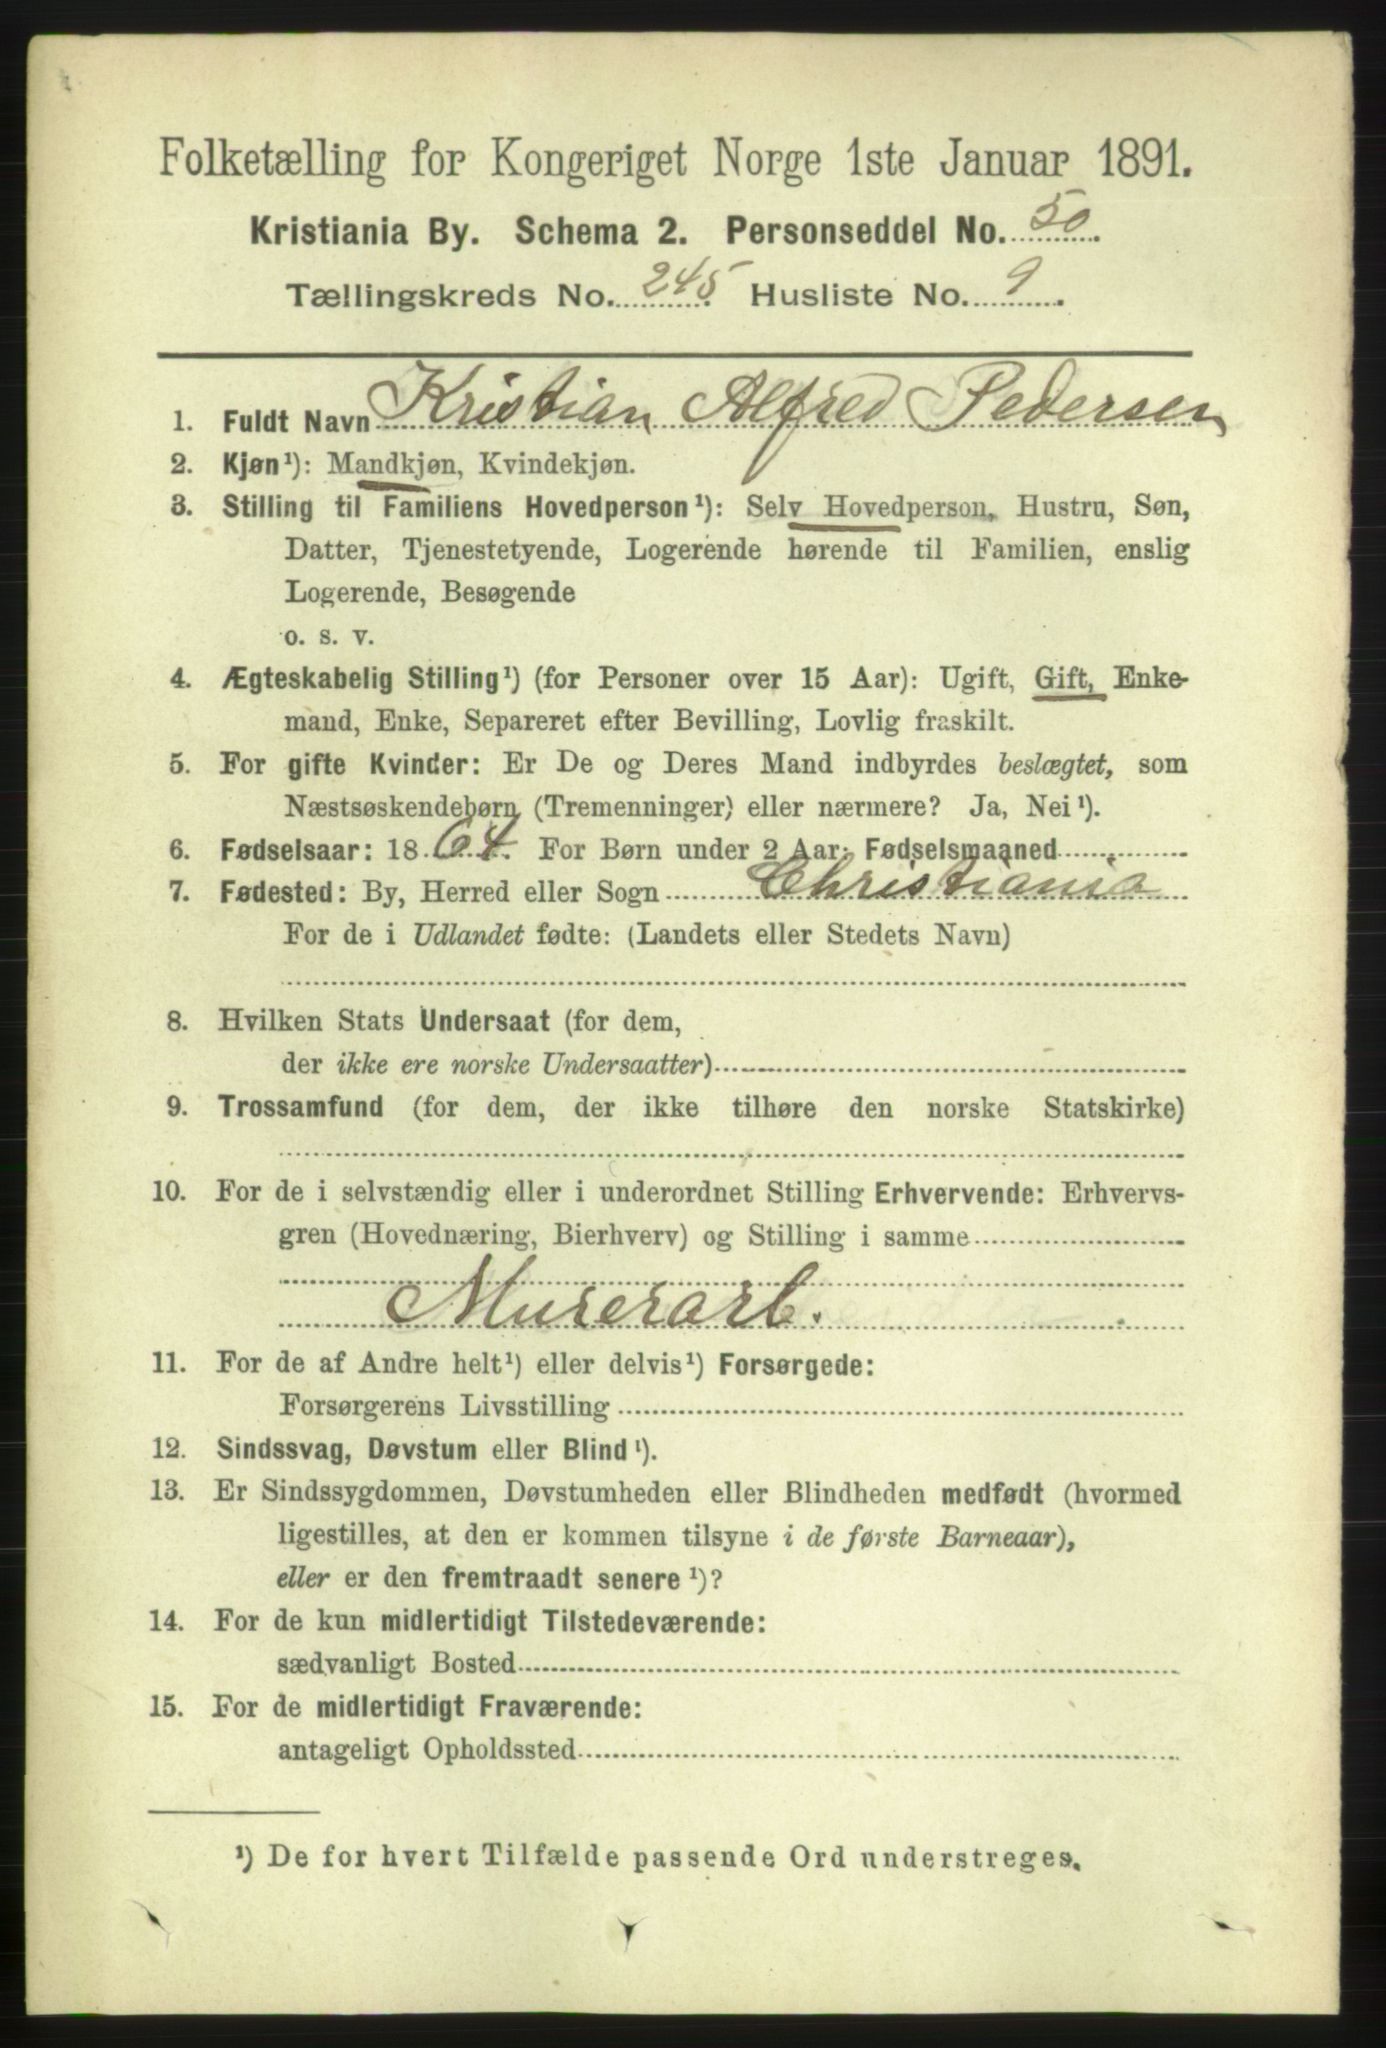 Folketælling for Kongeriget Norge 1ste Januar 1891.
Kristiania By. Schema 2. Personseddel No. 50
Tællingskreds No. 245 Husliste No. 9
1. Fuldt Navn Kristian Alfred Pedersen
2. Kjøn¹): Mandkjøn, Kvindekjøn.
3. Stilling til Familiens Hovedperson¹): Selv Hovedperson, Hustru, Søn,
Datter, Tjenestetyende, Logerende hørende til Familien, enslig
Logerende, Besøgende
o. s. v.
4. Ægteskabelig Stilling¹) (for Personer over 15 Aar): Ugift, Gift, Enke-
mand, Enke, Separeret efter Bevilling, Lovlig fraskilt.
5. For gifte Kvinder: Er De og Deres Mand indbyrdes beslægtet, som
Næstsøskendebørn (Tremenninger) eller nærmere? Ja, Nei¹).
6. Fødselsaar: 1864. For Børn under 2 Aar: Fødselsmaaned
7. Fødested: By, Herred eller Sogn Christiania
For de i Udlandet fødte: (Landets eller Stedets Navn)
8. Hvilken Stats Undersaat (for dem,
der ikke ere norske Undersaatter)
9. Trossamfund (for dem, der ikke tilhøre den norske Statskirke)
10. For de i selvstændig eller i underordnet Stilling Erhvervende: Erhvervs-
gren (Hovednæring, Bierhverv) og Stilling i samme
Murerarb.
11. For de af Andre helt¹) eller delvis¹) Forsørgede:
Forsørgerens Livsstilling
12. Sindssvag, Døvstum eller Blind¹).
13. Er Sindssygdommen, Døvstumheden eller Blindheden medfødt (hvormed
ligestilles, at den er kommen tilsyne i de første Barneaar),
eller er den fremtraadt senere¹)?
14. For de kun midlertidigt Tilstedeværende:
sædvanligt Bosted
15. For de midlertidigt Fraværende:
antageligt Opholdssted
¹) De for hvert Tilfælde passende Ord understreges.